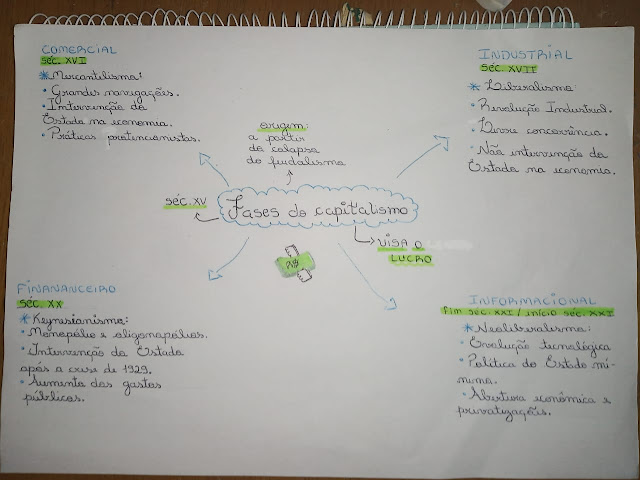 COMERCIAL
SÉC. XVI
* Mercantilismo:
• Grandes navegações.
• Intervenção do
Estado na economia.
• Práticas protencionistas.
INDUSTRIAL
SÉC. XVII
* Liberalismo:
• Revolução Industrial.
• Livre concorrência.
• Não intervenção do
Estado na economia.
origem:
a partir
do colapso
do feudalismo
SÉC. XV
Fases do capitalismo
VISA O
LUCRO
FINANANCEIRO
SÉC. XX
* Keynesianismo:
• Monopólio e oligomopólios.
• Intervenção do Estado
após a crise de 1929.
• Aumento dos gastos
públicos.
INFORMACIONAL
Fim séc. XXI / início séc. XXI
* Neoliberalismo:
• Evolução tecnológica
• Política do Estado mí-
nimo.
• Abertura econômica e
privatizações.